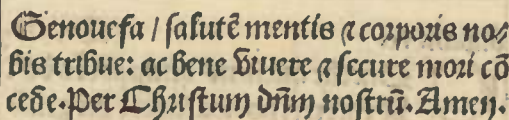 Genouefa / salutē mentis ⁊ corporis no⸗
bis tribue: ac bene viuere ⁊ secure mori cō
cede. Per Christum dn̄m nostrū. Amen.